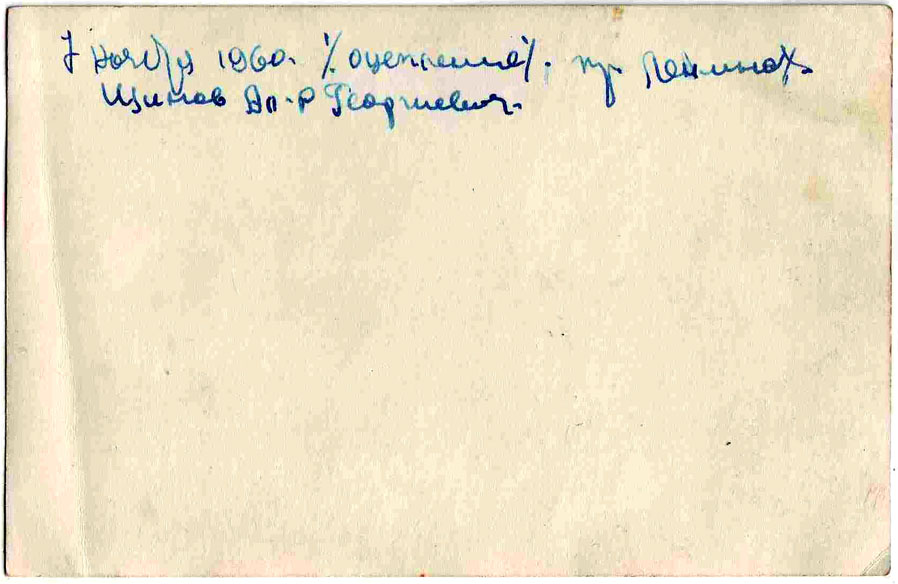 7 Ноября 1960. /оцепление/. пр. Ленина.
Щинов Ал-р Георгиевич.